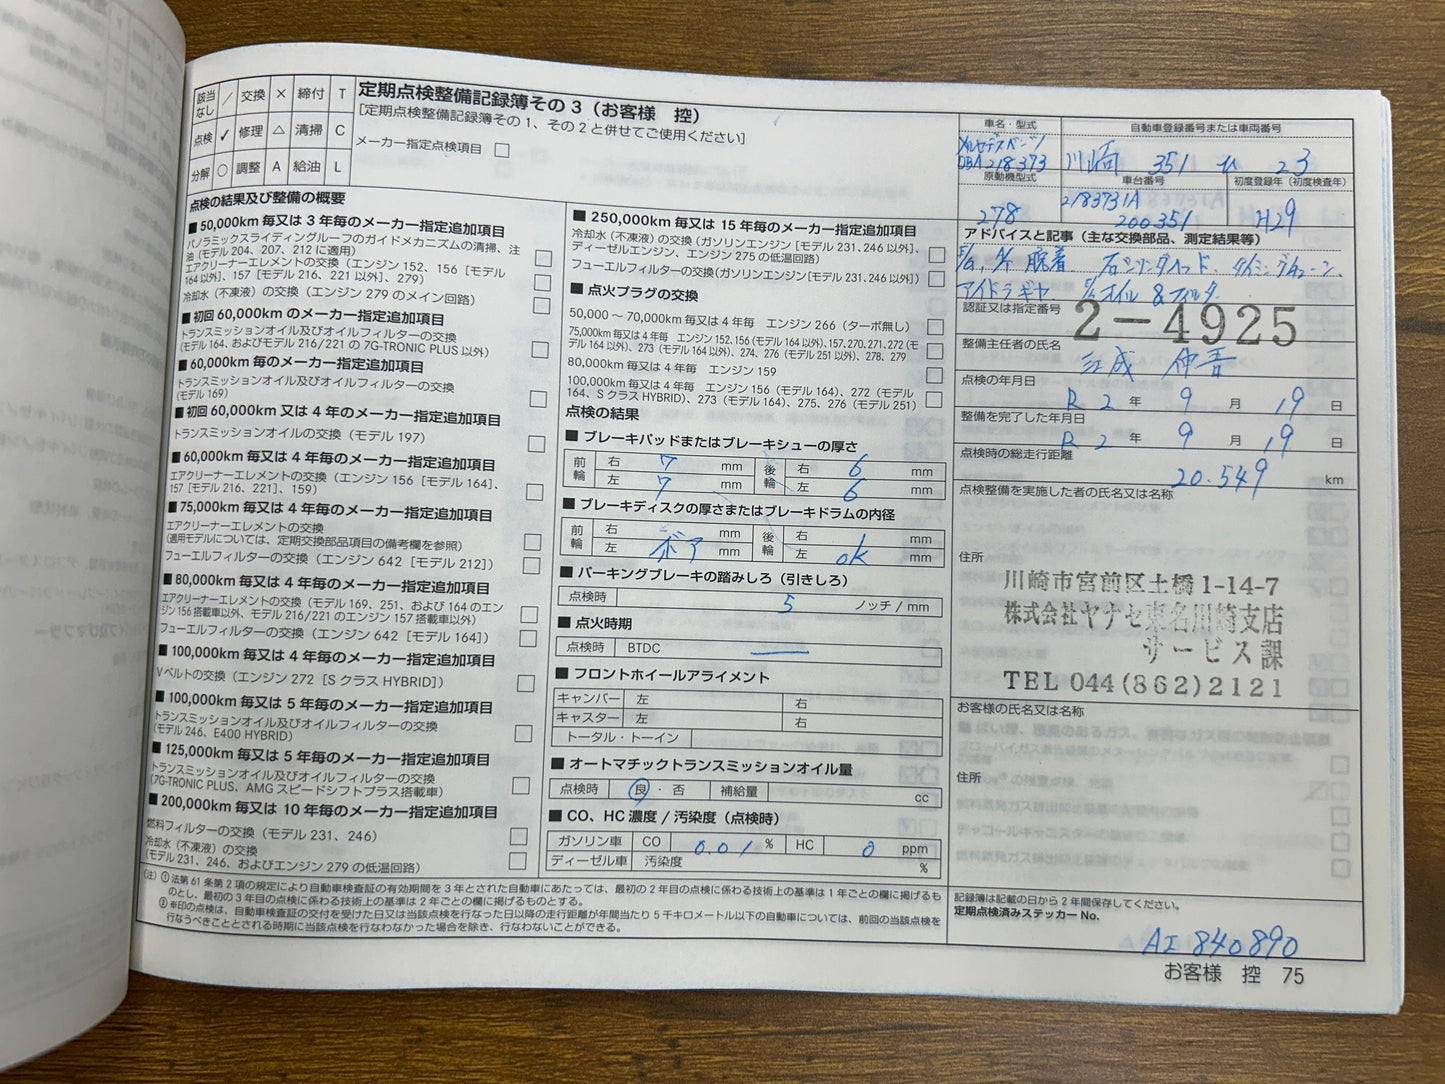 該当なし ／ 交換 × 締付 T
点検 ✓ 修理 △ 清掃 C
分解 ○ 調整 A 給油 L
定期点検整備記録簿その3（お客様　控）
［定期点検整備記録簿その1、その2と併せてご使用ください］
メーカー指定点検項目 □
点検の結果及び整備の概要
■ 50,000km 毎又は 3 年毎のメーカー指定追加項目
パノラミックスライディングルーフのガイドメカニズムの清掃、注
油（モデル 204、207、212 に適用）
エアクリーナーエレメントの交換（エンジン 152、156［モデル
164 以外］、157［モデル 216、221 以外］、279）
冷却水（不凍液）の交換（エンジン 279 のメイン回路）
■ 初回 60,000km のメーカー指定追加項目
トランスミッションオイル及びオイルフィルターの交換
（モデル 164、およびモデル 216/221 の 7G-TRONIC PLUS 以外）
■ 60,000km 毎のメーカー指定追加項目
トランスミッションオイル及びオイルフィルターの交換
（モデル 169）
■ 初回 60,000km 又は 4 年毎のメーカー指定追加項目
トランスミッションオイルの交換（モデル 197）
■ 60,000km 毎又は 4 年毎のメーカー指定追加項目
エアクリーナーエレメントの交換（エンジン 156［モデル 164］、
157［モデル 216、221］、159）
■ 75,000km 毎又は 4 年毎のメーカー指定追加項目
エアクリーナーエレメントの交換
（適用モデルについては、定期交換部品項目の備考欄を参照）
フューエルフィルターの交換（エンジン 642［モデル 212］）
■ 80,000km 毎又は 4 年毎のメーカー指定追加項目
エアクリーナーエレメントの交換（モデル 169、251、および 164 のエン
ジン 156 搭載車以外、モデル 216/221 のエンジン 157 搭載車以外）
フューエルフィルターの交換（エンジン 642［モデル 164］）
■ 100,000km 毎又は 4 年毎のメーカー指定追加項目
Vベルトの交換（エンジン 272［S クラス HYBRID］）
■ 100,000km 毎又は 5 年毎のメーカー指定追加項目
トランスミッションオイル及びオイルフィルターの交換
（モデル 246、E400 HYBRID）
■ 125,000km 毎又は 5 年毎のメーカー指定追加項目
トランスミッションオイル及びオイルフィルターの交換
（7G-TRONIC PLUS、AMG スピードシフトプラス搭載車）
■ 200,000km 毎又は 10 年毎のメーカー指定追加項目
燃料フィルターの交換（モデル 231、246）
冷却水（不凍液）の交換
（モデル 231、246、およびエンジン 279 の低温回路）
■ 250,000km 毎又は 15 年毎のメーカー指定追加項目
冷却水（不凍液）の交換（ガソリンエンジン［モデル 231、246 以外］、
ディーゼルエンジン、エンジン 275 の低温回路）
フューエルフィルターの交換（ガソリンエンジン［モデル 231、246 以外］）
■ 点火プラグの交換
50,000 ～ 70,000km 毎又は 4 年毎　エンジン 266（ターボ無し）
75,000km 毎又は 4 年毎　エンジン 152、156（モデル 164 以外）、157、270、271、272（モデル
164 以外）、273（モデル 164 以外）、274、276（モデル 251 以外）、278、279
80,000km 毎又は 4 年毎　エンジン 159
100,000km 毎又は 4 年毎　エンジン 156（モデル 164）、272（モデル
164、S クラス HYBRID）、273（モデル 164）、275、276（モデル 251）
点検の結果
■ ブレーキパッドまたはブレーキシューの厚さ
前輪 右 7 mm 後輪 右 6 mm
左 7 mm 左 6 mm
■ ブレーキディスクの厚さまたはブレーキドラムの内径
前輪 右 mm 後輪 右 mm
左 ボア mm 左 ok mm
■ パーキングブレーキの踏みしろ（引きしろ）
点検時 5 ノッチ / mm
■ 点火時期
点検時 BTDC
■ フロントホイールアライメント
キャンバー 左 右
キャスター 左 右
トータル・トーイン
■ オートマチックトランスミッションオイル量
点検時 良・否 補給量 cc
■ CO、HC 濃度 / 汚染度（点検時）
ガソリン車 CO 0.01 % HC 0 ppm
ディーゼル車 汚染度 %
車名・型式 自動車登録番号または車両番号
メルセデスベンツ
DBA 218373 川崎 351 ひ 23
原動機型式 車台番号 初度登録年（初度検査年）
278 2183731A 200351 H29
アドバイスと記事（主な交換部品、測定結果等）
脱着 右シリンダヘッド、タイミングチェーン、
アイドラギヤ オイル & フィルタ
認証又は指定番号 2-4925
整備主任者の氏名
点検の年月日 R 2 年 9 月 19 日
整備を完了した年月日 R 2 年 9 月 19 日
点検時の総走行距離 20.549 km
点検整備を実施した者の氏名又は名称
住所
川崎市宮前区土橋 1-14-7
株式会社ヤナセ東名川崎支店
サービス課
TEL 044(862)2121
お客様の氏名又は名称
住所
（注）① 法第 61 条第 2 項の規定により自動車検査証の有効期間を 3 年とされた自動車にあたっては、最初の 2 年目の点検に係わる技術上の基準は 1 年ごとの欄に掲げるも
のとし、最初の 3 年目の点検に係わる技術上の基準は 2 年ごとの欄に掲げるものとする。
② ※印の点検は、自動車検査証の交付を受けた日又は当該点検を行なった日以降の走行距離が年間当たり 5 千キロメートル以下の自動車については、前回の当該点検を
行なうべきこととされる時期に当該点検を行なわなかった場合を除き、行なわないことができる。
記録簿は記載の日から 2 年間保存してください。
定期点検済みステッカー No.
AI 840890
お客様　控　75